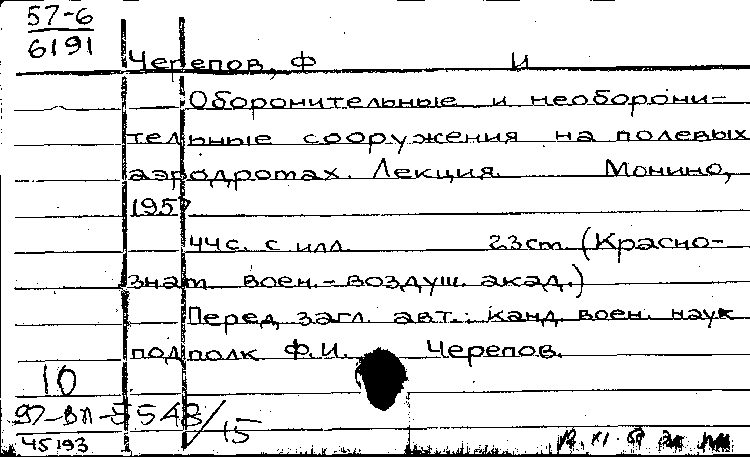 57-6
6191
Черепов, Ф И
Оборонительные и необорони-
тельные сооружения на полевых
аэродромах. Лекция. Монино,
1957
44 с. с илл. 23 см. (Красно-
знам. воен.-воздуш. акад.)
Перед загл. авт.: канд. воен. наук
подполк. Ф.И. Черепов.
10
97-ВП-5548/15
45193